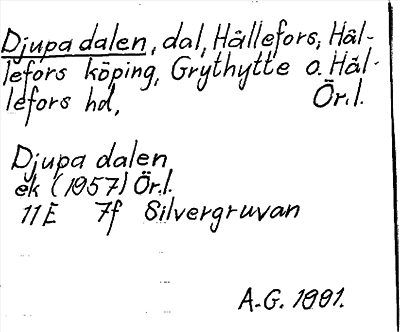 Djupa dalen, dal, Hällefors, Häl-
lefors köping, Grythytte o. Häl-
lefors hd, Ör.l.
Djupa dalen
ek (1957) Ör.l.
11E 7f Silvergruvan
A-G. 1991.